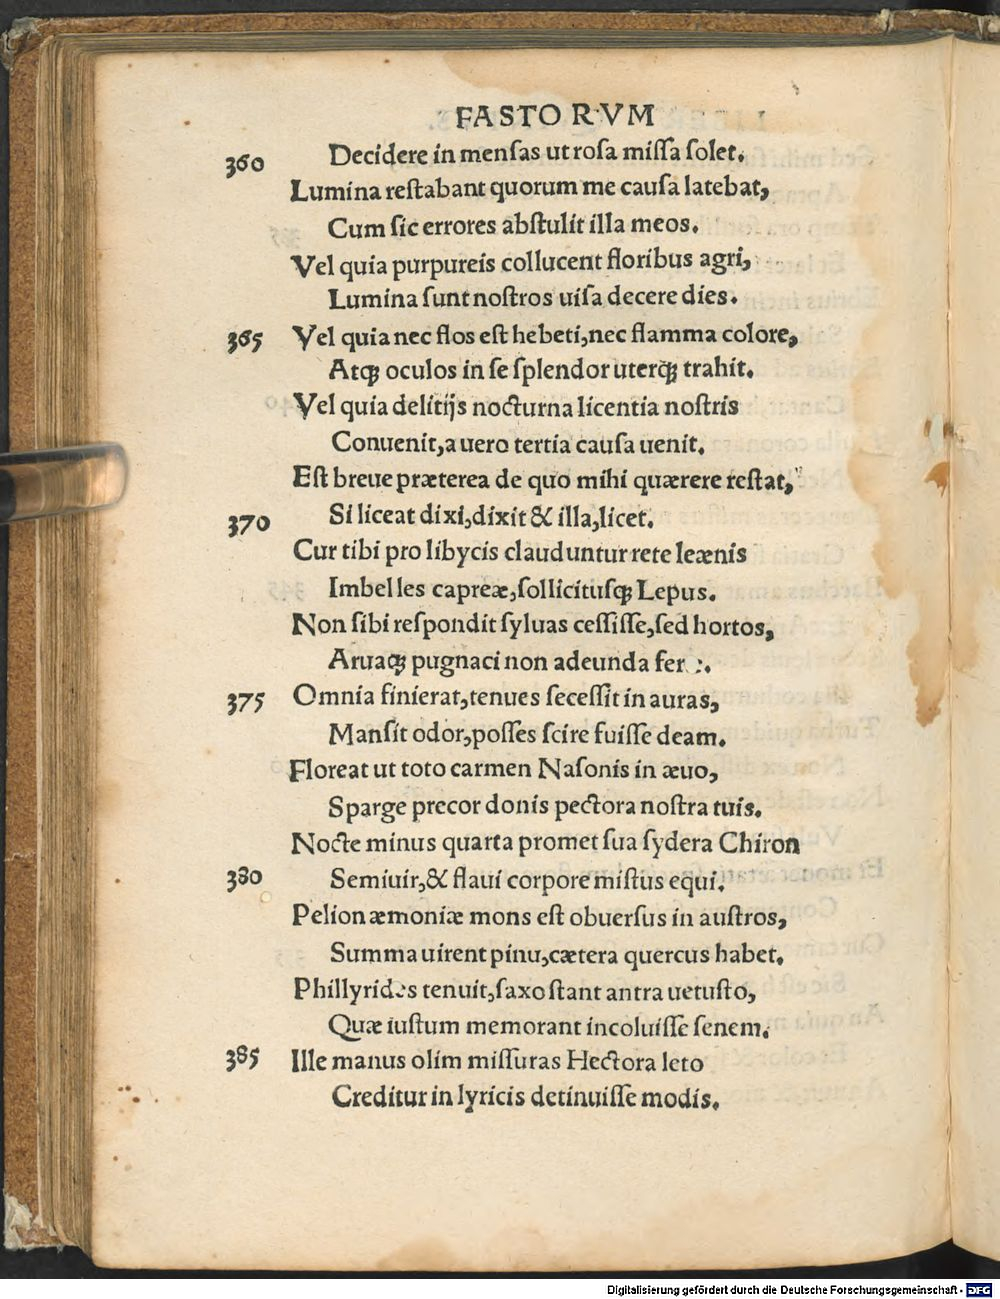 FASTORVM
360 Decidere in mensas ut rosa missa solet.
Lumina restabant quorum me causa latebat,
Cum sic errores abstulit illa meos.
Vel quia purpureis collucent floribus agri,
Lumina sunt nostros uisa decere dies.
365 Vel quia nec flos est hebeti, nec flamma colore,
Atq; oculos in se splendor uterq; trahit.
Vel quia delitijs nocturna licentia nostris
Conuenit, a uero tertia causa uenit.
Est breue præterea de quo mihi quærere restat,
370 Si liceat dixi, dixit & illa, licet.
Cur tibi pro libycis clauduntur rete leænis
Imbelles capreæ, sollicitusq; Lepus.
Non sibi respondit syluas cessisse, sed hortos,
Aruaq; pugnaci non adeunda
375 Omnia finierat, tenues secessit in auras,
Mansit odor, posses scire fuisse deam.
Floreat ut toto carmen Nasonis in æuo,
Sparge precor donis pectora nostra tuis.
Nocte minus quarta promet sua sydera Chiron
380 Semiuir, & flaui corpore mistus equi.
Pelion æmoniæ mons est obuersus in austros,
Summa uirent pinu, cætera quercus habet.
Phillyrides tenuit, saxo stant antra uetusto,
Quæ iustum memorant incoluisse senem.
385 Ille manus olim missuras Hectora leto
Creditur in lyricis detinuisse modis.
Digitalisierung gefördert durch die Deutsche Forschungsgemeinschaft - DFG